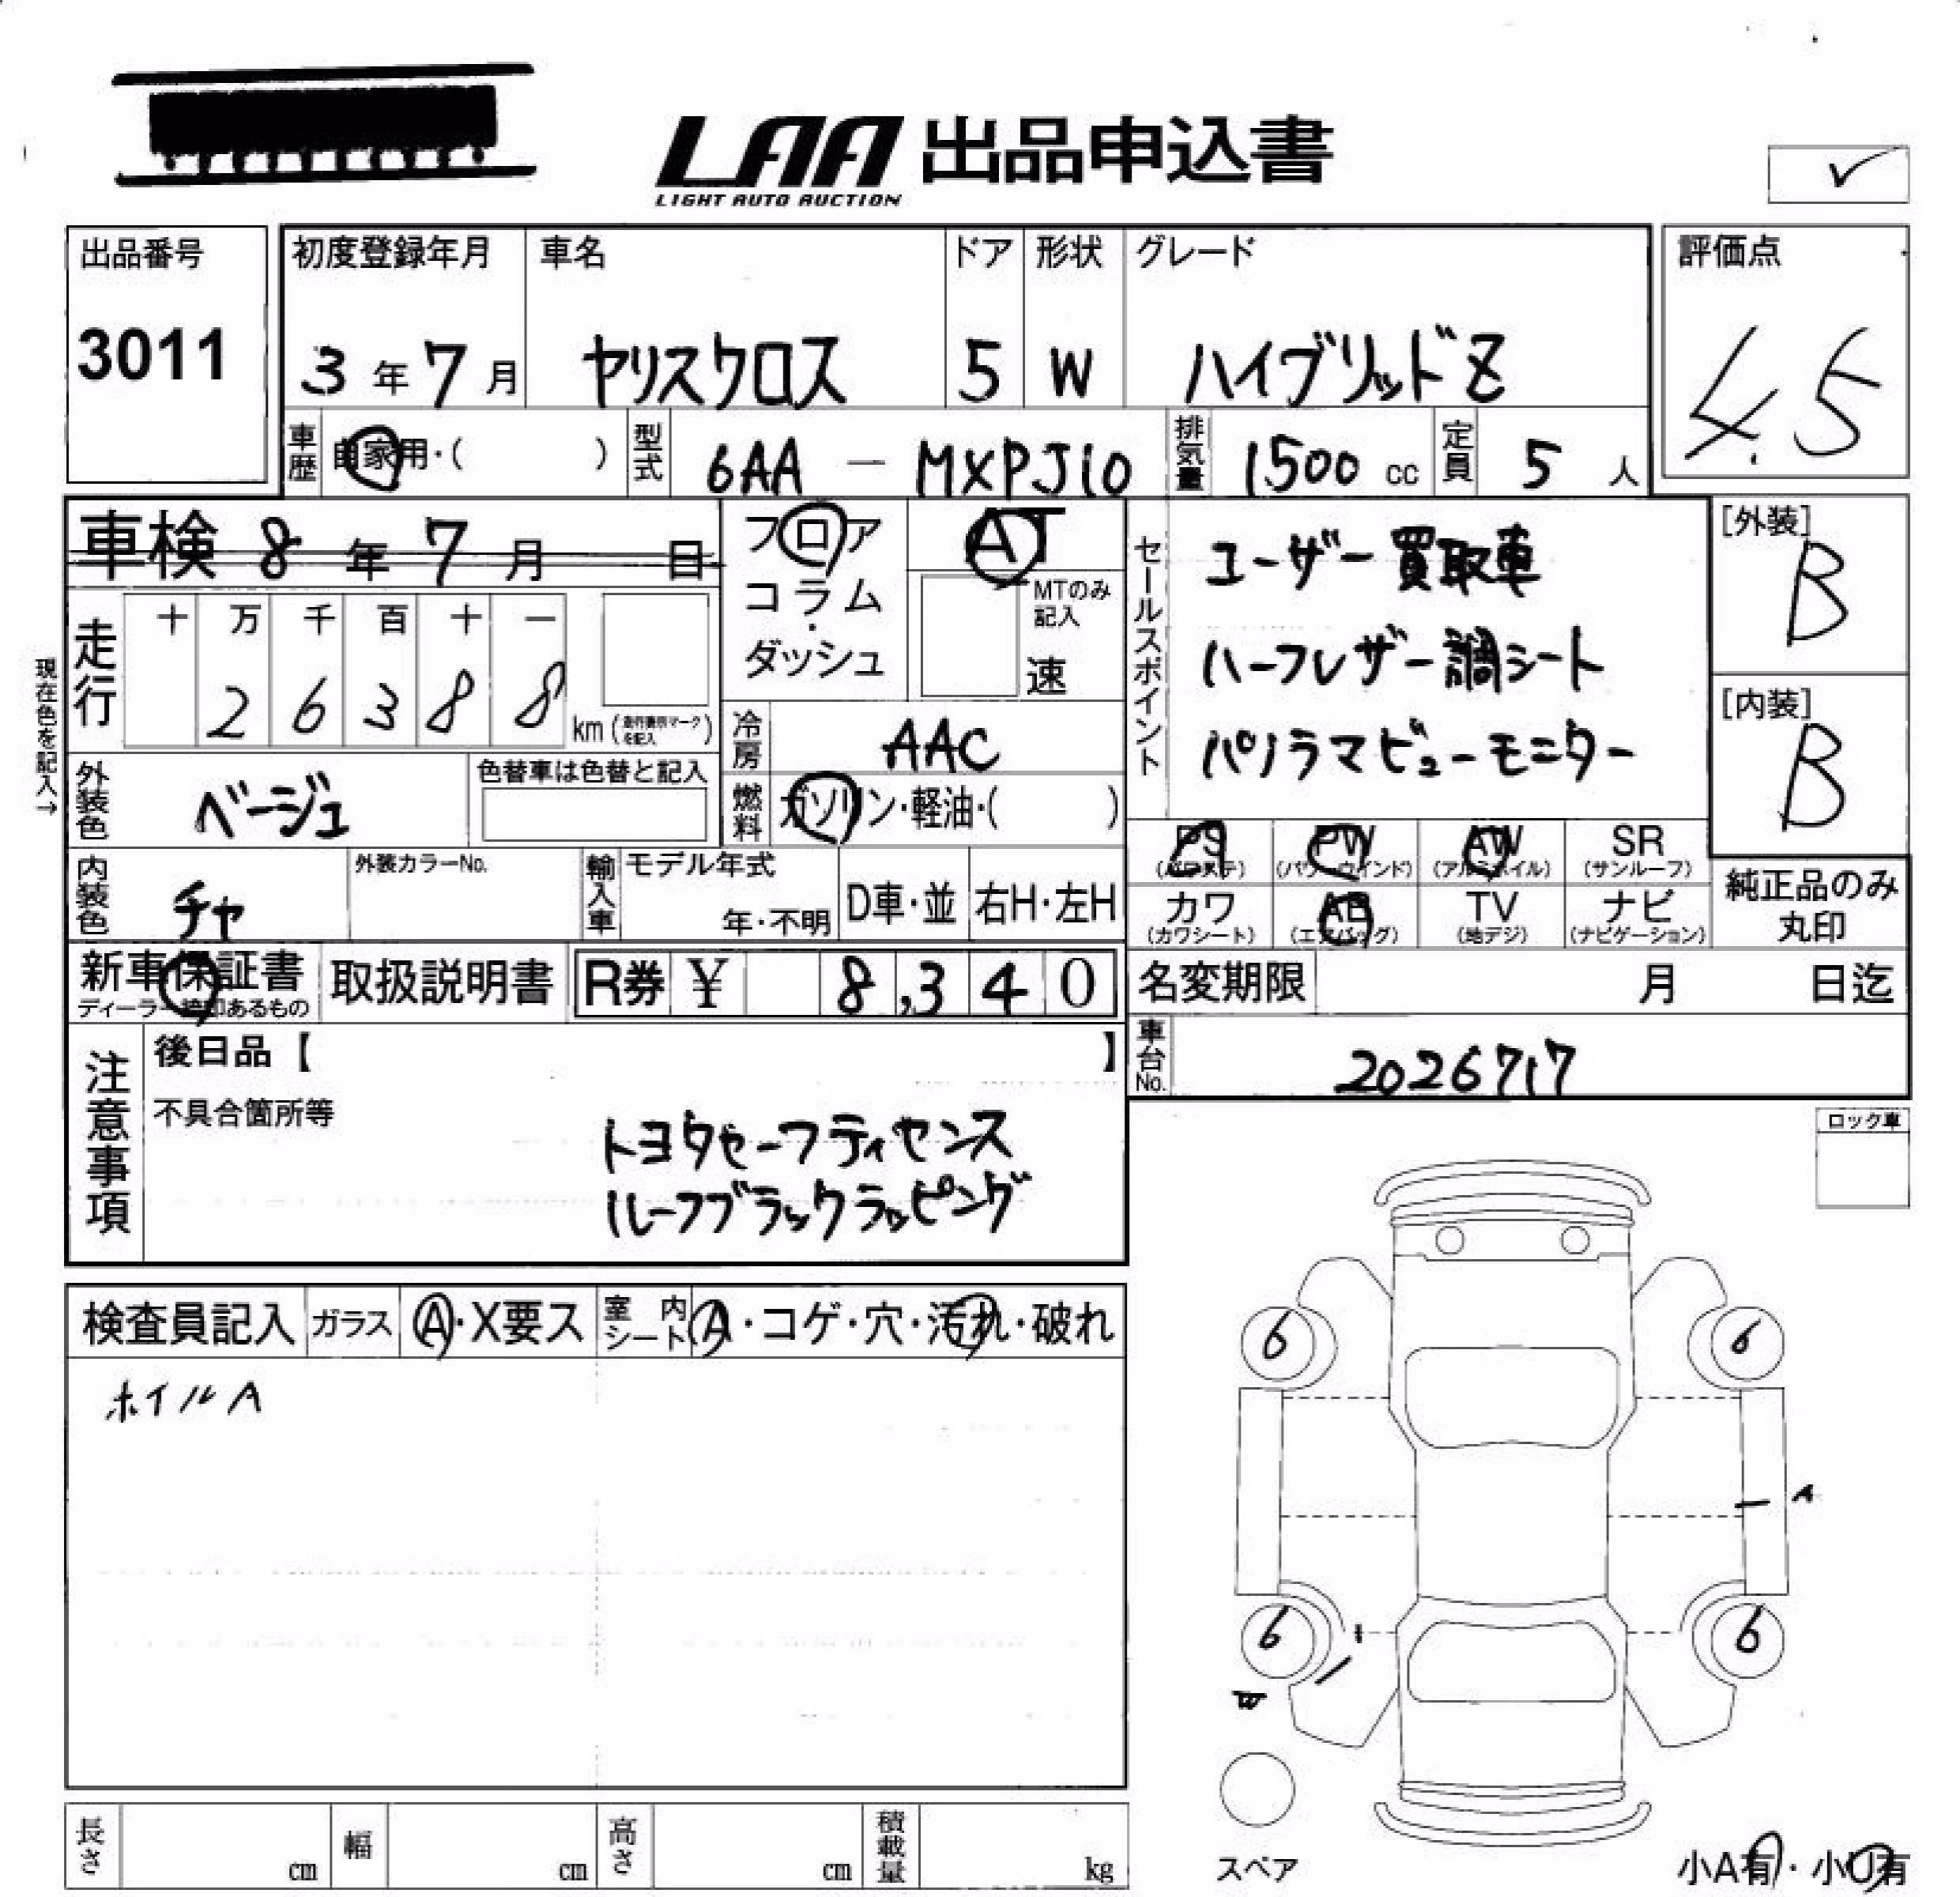 LAA 出品申込書
LIGHT AUTO AUCTION
✓
出品番号
3011
初度登録年月 車名 ドア 形状 グレード
3年7月 ヤリスクロス 5 W ハイブリッドZ
評価点
4.5
車歴 自家用・( ) 型式 6AA - MXPJ10 排気量 1500 cc 定員 5 人
車検 8年7月 日
フロア
コラム
・
ダッシュ
AT
MTのみ
記入
速
セールスポイント
ユーザー買取車
ハーフレザー調シート
パノラマビューモニター
[外装]
B
[内装]
B
現在色を記入→
走行
十 万 千 百 十 一
2 6 3 8 8 km (走行表示マークを記入)
冷房 AAC
外装色 ベージュ 色替車は色替と記入
燃料 ガソリン・軽油・( )
PS (パワステ) PW (パワーウインド) AW (アルミホイル) SR (サンルーフ)
カワ (カワシート) AB (エアバッグ) TV (地デジ) ナビ (ナビゲーション)
純正品のみ
丸印
内装色 チャ 外装カラーNo. 輸入車 モデル年式 年・不明 D車・並 右H・左H
新車保証書 取扱説明書 R券 ¥ 8,340
ディーラー捺印あるもの
名変期限 月 日迄
車台No. 2026717
注意事項
後日品【 】
不具合箇所等
トヨタセーフティセンス
ルーフブラックラッピング
ロック車
検査員記入 ガラス A・X要ス 室内シート A・コゲ・穴・汚れ・破れ
ホイルA
6 6
A
6 6
W
スペア
小A有・小U有
長さ cm 幅 cm 高さ cm 積載量 kg